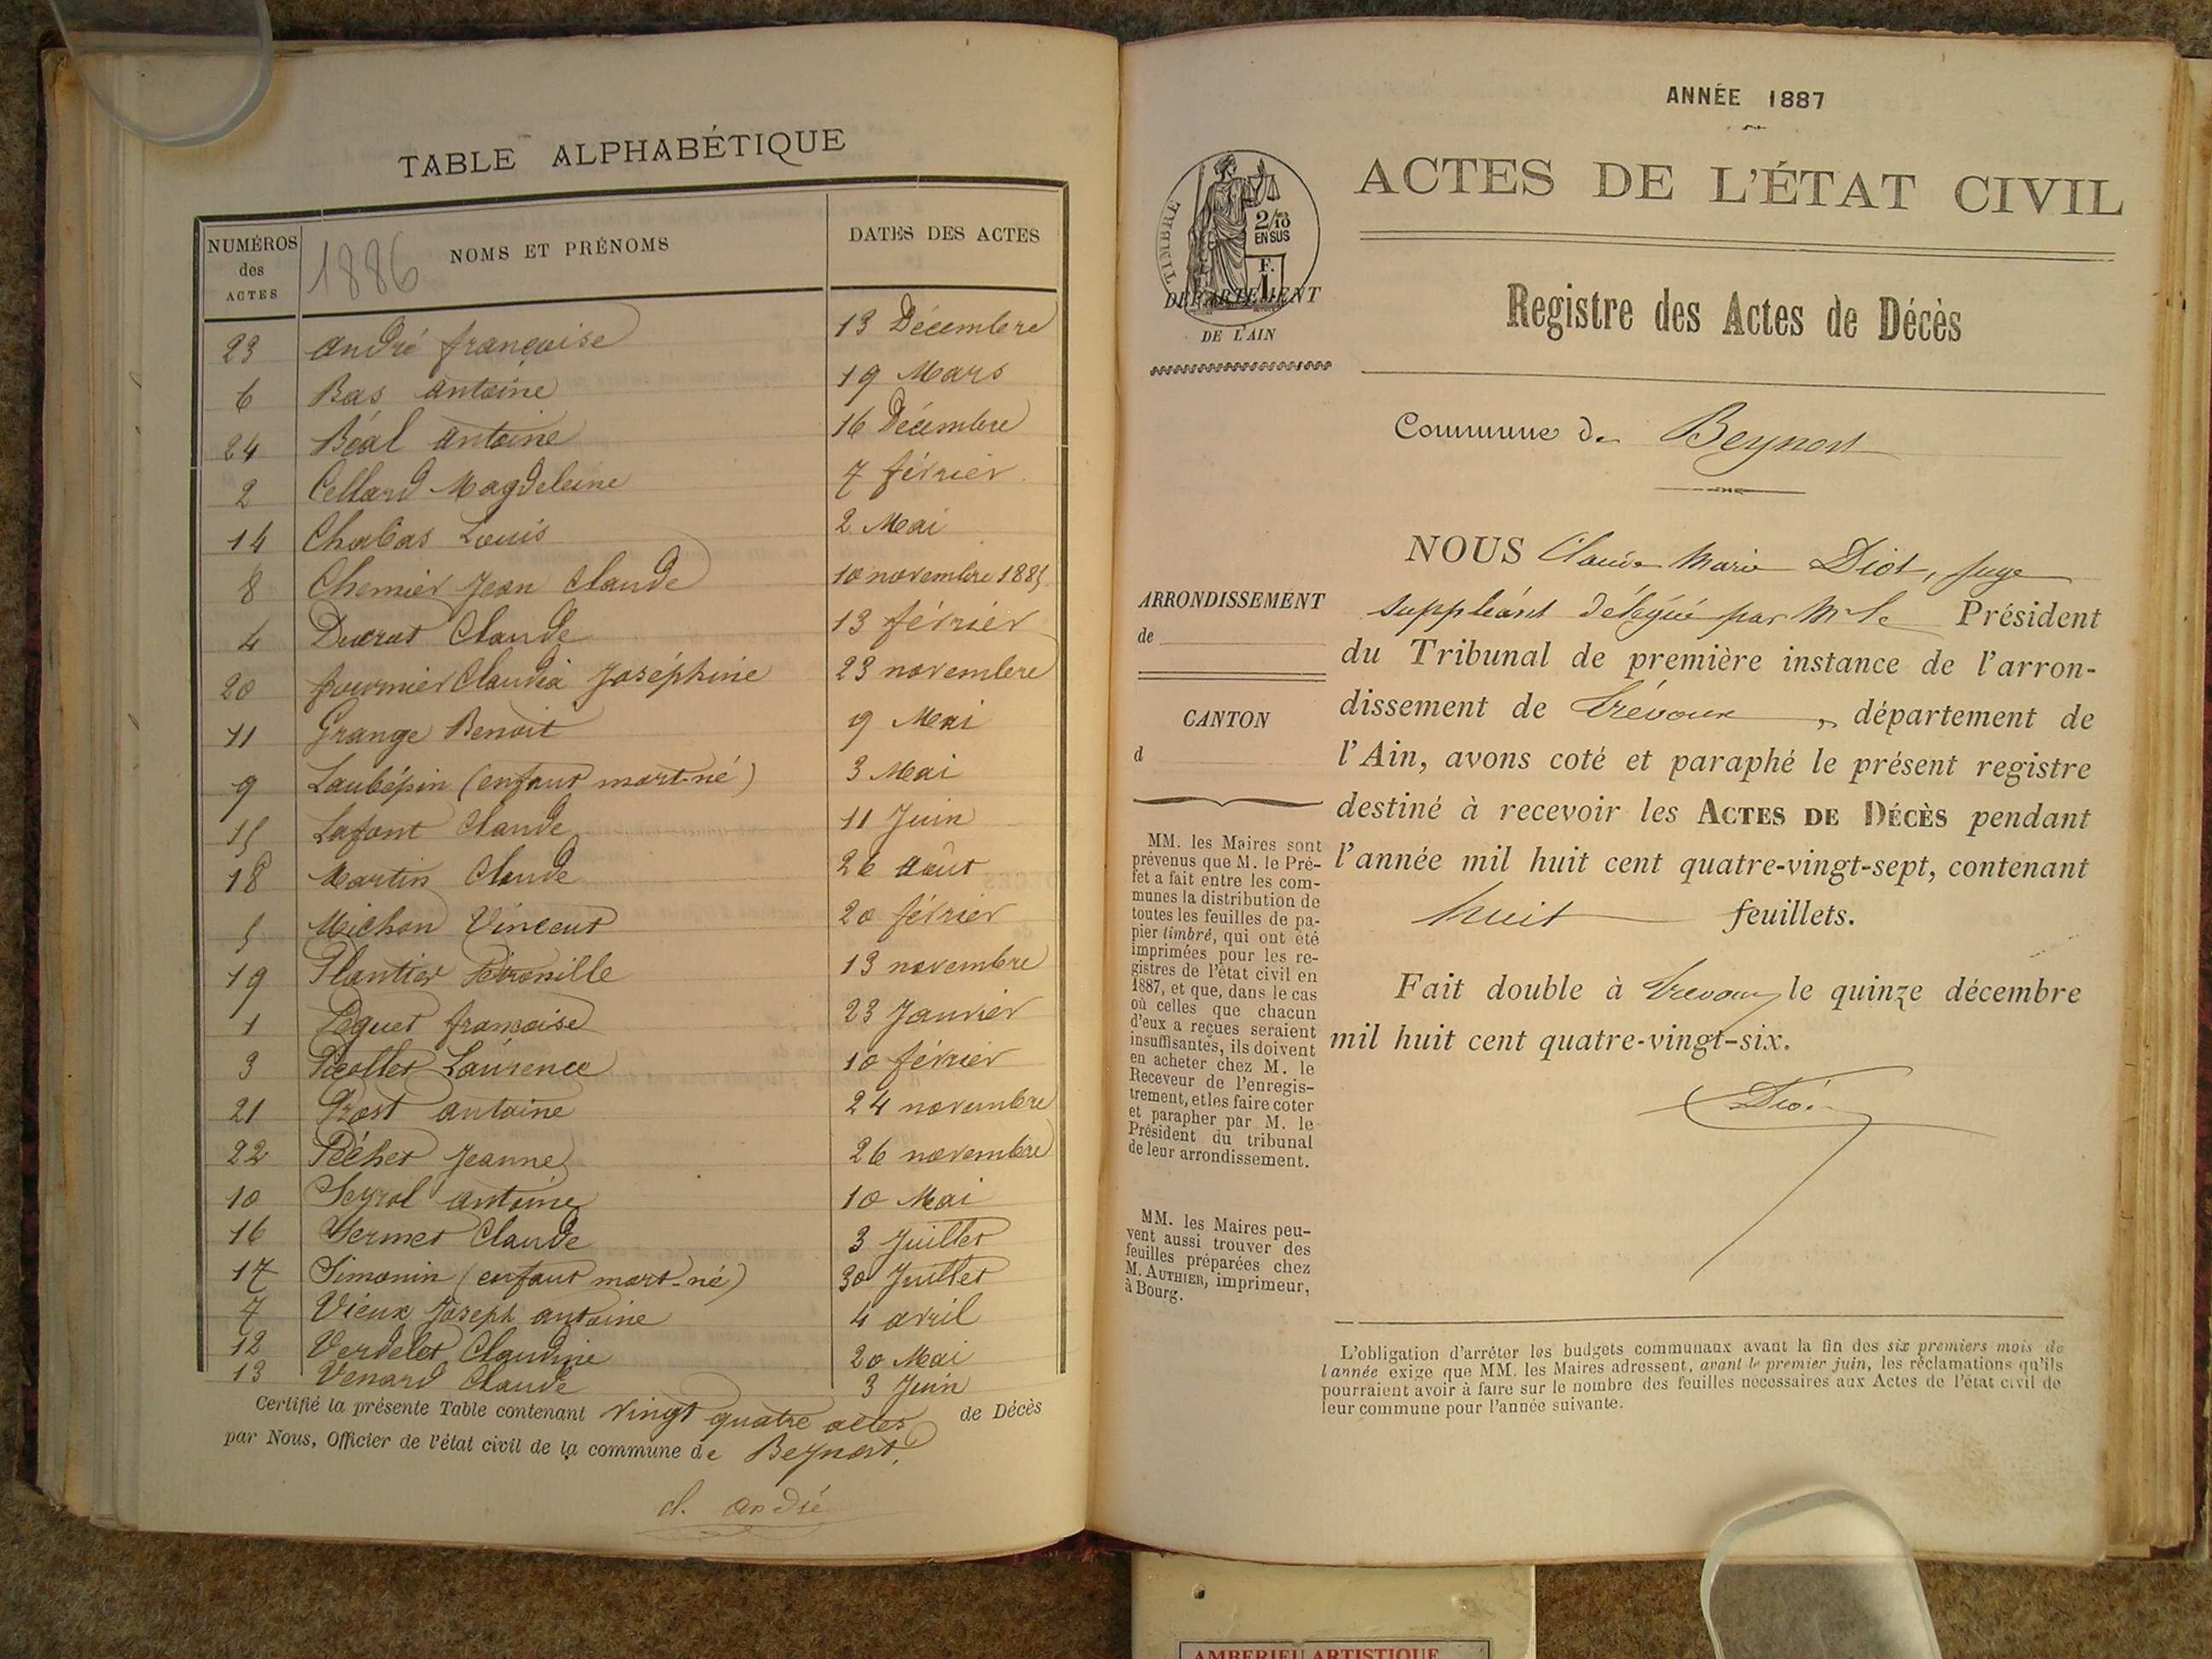 TABLE ALPHABÉTIQUE
NUMÉROS des ACTES 1886 NOMS ET PRÉNOMS DATES DES ACTES
23 André françoise 13 Décembre
6 Bas Antoine 19 Mars
24 Béal Antoine 16 Décembre
2 Cellard Magdeleine 7 février
14 Chabas Louis 2 Mai
8 Chemier Jean Claude 10 novembre 1885
4 Ducrat Claude 13 février
20 fournier Claudia Joséphine 23 novembre
11 Grange Benoit 9 Mai
9 Laubépin (enfant mort-né) 3 Mai
15 Lafont Claude 11 Juin
18 Martin Claude 26 Août
5 Michon Vincent 20 février
19 Plantier Pétronille 13 novembre
1 Péguet françoise 23 Janvier
3 Picollet Laurence 10 février
21 Prost antoine 24 novembre
22 Péchet Jeanne 26 novembre
10 Seyrol antoine 10 Mai
16 Sermet Claude 3 Juillet
17 Simonin (enfant mort-né) 30 Juillet
7 Vieux Joseph antoine 4 avril
12 Verdelet Claudine 20 Mai
13 Venard Claude 3 Juin
Certifié la présente Table contenant vingt quatre actes de Décès
par Nous, Officier de l'état civil de la commune de Beynost.
cl. andré
ANNÉE 1887
ACTES DE L'ÉTAT CIVIL
TIMBRE
2/10 EN SUS
F. 1
DÉPARTEMENT
DE L'AIN
Registre des Actes de Décès
Commune de Beynost
NOUS Claude Marie Diot, juge
suppléant délégué par Mr le Président
du Tribunal de première instance de l'arron-
dissement de Trévoux, département de
l'Ain, avons coté et paraphé le présent registre
destiné à recevoir les ACTES DE DÉCÈS pendant
l'année mil huit cent quatre-vingt-sept, contenant
huit feuillets.
Fait double à Trévoux, le quinze décembre
mil huit cent quatre-vingt-six.
Diot
ARRONDISSEMENT
de
CANTON
d
MM. les Maires sont
prévenus que M. le Pré-
fet a fait entre les com-
munes la distribution de
toutes les feuilles de pa-
pier timbré, qui ont été
imprimées pour les re-
gistres de l'état civil en
1887, et que, dans le cas
où celles que chacun
d'eux a reçues seraient
insuffisantes, ils doivent
en acheter chez M. le
Receveur de l'enregis-
trement, et les faire coter
et parapher par M. le
Président du tribunal
de leur arrondissement.
MM. les Maires peu-
vent aussi trouver des
feuilles préparées chez
M. AUTHIER, imprimeur,
à Bourg.
L'obligation d'arrêter les budgets communaux avant la fin des six premiers mois de
l'année exige que MM. les Maires adressent, avant le premier juin, les réclamations qu'ils
pourraient avoir à faire sur le nombre des feuilles nécessaires aux Actes de l'état civil de
leur commune pour l'année suivante.
AMBERIEU ARTISTIQUE